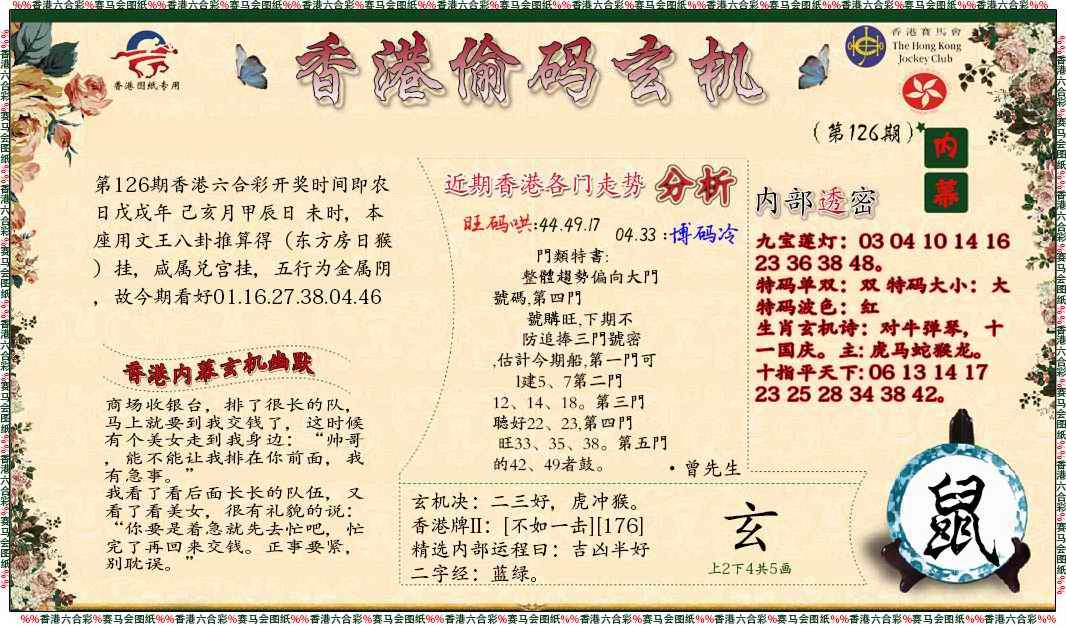 %%香港六合彩%赛马会图纸%%香港六合彩%赛马会图纸%%香港六合彩%赛马会图纸%%香港六合彩%赛马会图纸%%香港六合彩%赛马会图纸%%香港六合彩%%
香港图纸专用
香港偷码玄机
香港賽馬會
The Hong Kong
Jockey Club
(第126期)
内
幕
第126期香港六合彩开奖时间即农
日戊戌年 己亥月甲辰日 未时，本
座用文王八卦推算得（东方房日猴
）挂，咸属兑宫挂，五行为金属阴
，故今期看好01.16.27.38.04.46
香港内幕玄机幽默
商场收银台，排了很长的队，
马上就要到我交钱了，这时候
有个美女走到我身边：“帅哥
，能不能让我排在你前面，我
有急事。”
我看了看后面长长的队伍，又
看了看美女，很有礼貌的说：
“你要是着急就先去忙吧，忙
完了再回来交钱。正事要紧，
别耽误。”
近期香港各门走势 分析
旺码哄:44.49.17
04.33 :博码冷
門類特書:
整體趨勢偏向大門
號碼,第四門
號購旺,下期不
防追捧三門號密
,估計今期船,第一門可
1建5、7第二門
12、14、18。第三門
聽好22、23,第四門
旺33、35、38。第五門
的42、49者鼓。
·曾先生
内部透密
九宝莲灯：03 04 10 14 16
23 36 38 48。
特码单双：双 特码大小：大
特码波色：红
生肖玄机诗：对牛弹琴，十
一国庆。主: 虎马蛇猴龙。
十指平天下: 06 13 14 17
23 25 28 34 38 42。
玄机决：二三好，虎冲猴。
香港牌II：[不如一击][176]
精选内部运程曰：吉凶半好
二字经：蓝绿。
玄
上2下4共5画
鼠
%%香港六合彩%赛马会图纸%%香港六合彩%赛马会图纸%%香港六合彩%赛马会图纸%%香港六合彩%赛马会图纸%%香港六合彩%赛马会图纸%%香港六合彩%%